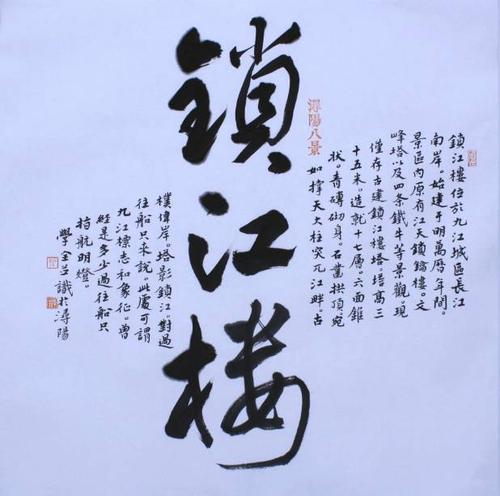 鎖江樓
潯陽八景
鎖江樓位於九江城區長江
南岸。始建于明萬曆年間。
景區內原有江天鎖鑰樓。文
峰塔以及四條鐵牛等景觀。現
僅存古建鎖江樓塔。塔高三
十五米。造就十七層。六面錐
狀。青磚砌身。石疊拱頂。宛
如撐天大柱突兀江畔。古
樸偉岸。塔影鎖江。對過
往船只來說此處可謂
九江標志和象征。曾
經是多少過往船只
航明燈。
學金識於潯陽